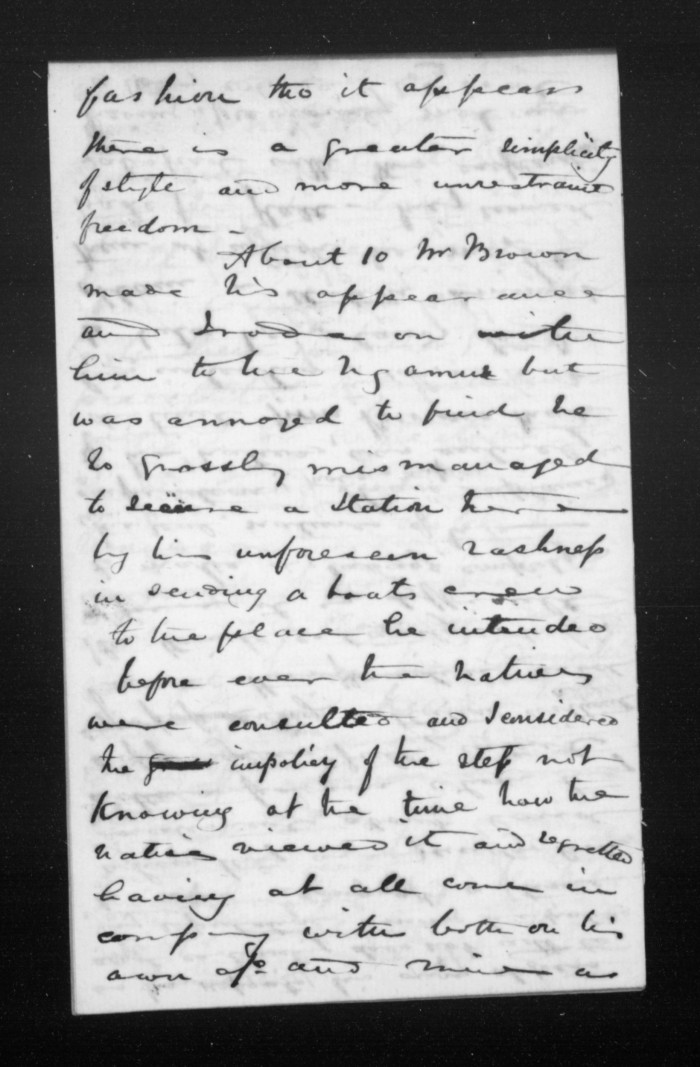 fashion tho it appears
there is a greater simplicity
of style and more unrestraint
freedom –
About 10 Mr Brown
made his appearance
and I rode on with
him to the Ngamuk but
was annoyed to find he
so grossly mismanaged
to secure a station here
by his unforeseen rashness
in sending a boats crew
to the place he intended
before ever the natives
were consulted and I considered
the impolicy of the step not
knowing at the time how the
natives viewed it and regretted
having at all come in
company with both on his
own and mine as